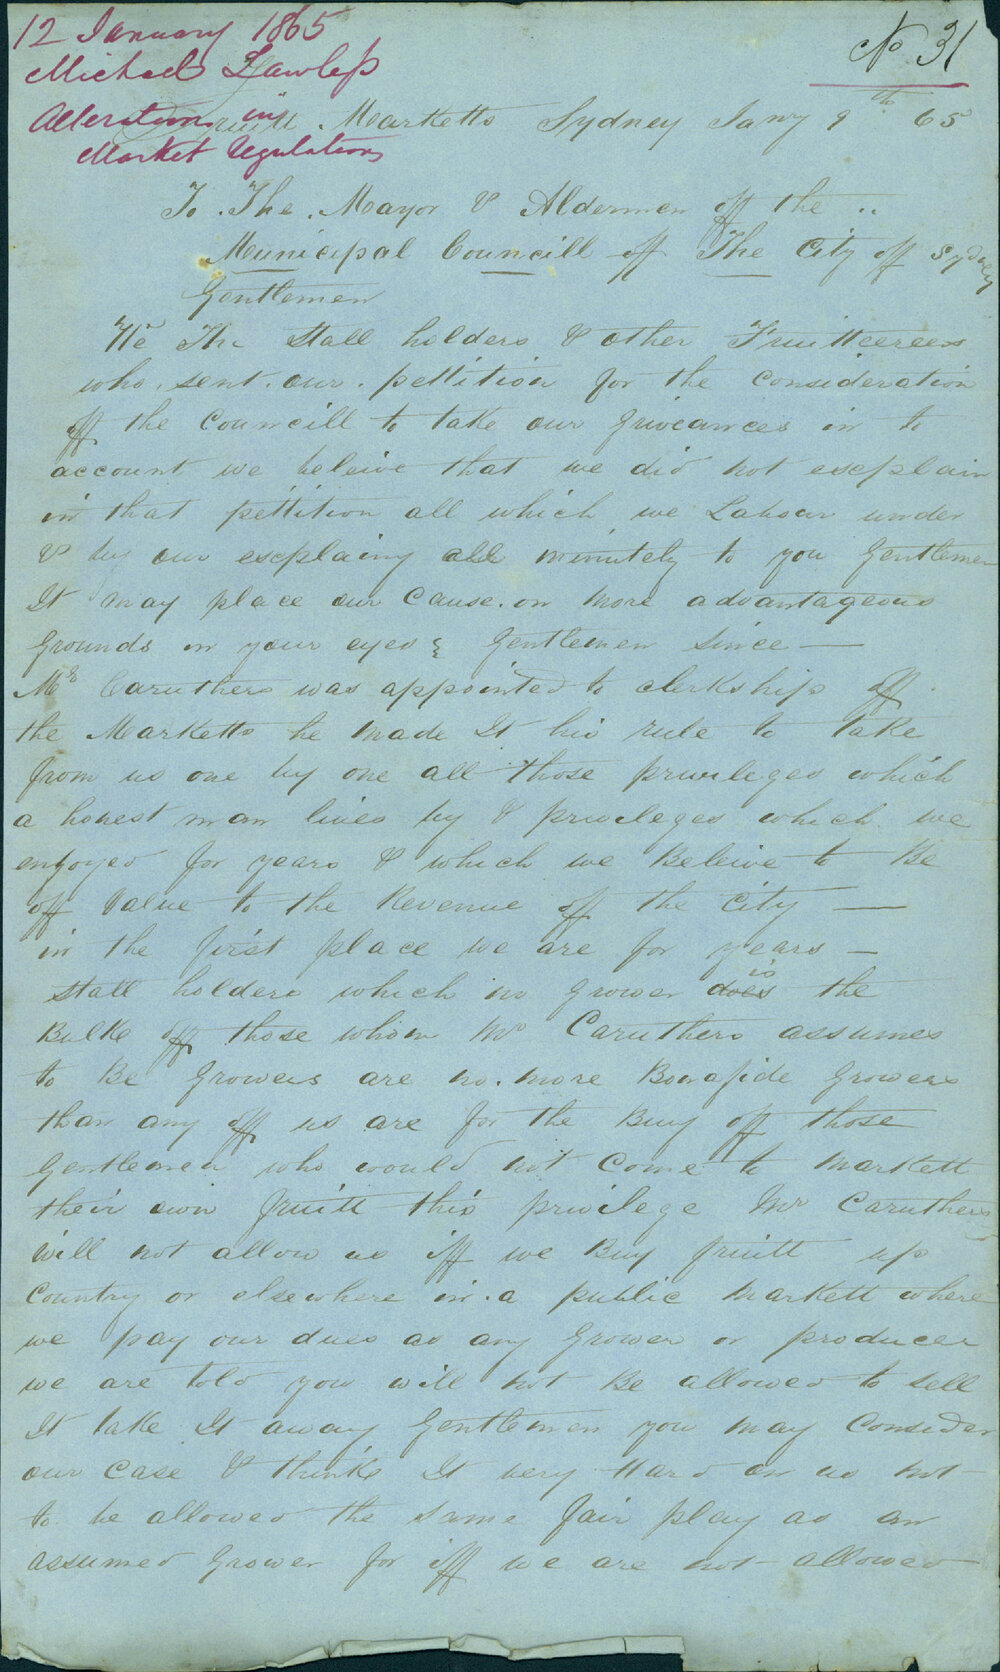 12 January 1865
Michael Lawless
Alteration in
Market Regulations
No 31
Fruitt. Marketts Sydney Jany 9th 65
To. The. Mayor & Aldermen off the ..
Municipal Councill off The City off Sydney
Gentlemen
We The Stall holders & other Fruitterers
who. sent. our. pettition for the Consideration
off the Councill to take our Griveances in to
account we beleive that we did not escplain
in that pettition all which we Labour under
& by our escplaing all minutely to you Gentlemen
It may place our Cause. on more advantageous
Grounds in your eyes Gentlemen Since —
Mr Caruthers was appointed to clerkship off
the Marketts he made It his rule to take
from us one by one all those privileges which
a honest man lives by & privileges which we
enjoyed for years & which we Beleive to Be
off Value to the Revenue off the City —
in the first place we are for years —
Stall holders which no Grower does is the
Bulke off those whom Mr Caruthers assumes
to Be Growers are no. more Bonafide Growers
than any off us are for the Buy off those
Gentlemen who would not Come to Markett
their own fruitt this privilege Mr Caruthers
Will not allow us iff we Buy fruitt up
Country or elsewhere in. a public Markett where
we pay our dues as any Grower or producer
we are told you will not Be allowed to sell
It take It away Gentlemen you may Consider
our Case & thinke It very Hard on us not
to be allowed the same fair play as an
assumed Grower for iff we are not allowed